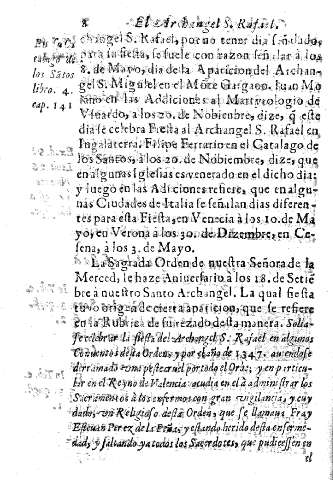 8 El Archangel S. Rafael.
changel S. Rafael, por no tener dia señalado,
para su fiesta, se suele con razon señalar à los
8. de Mayo, dia de la Aparicion del Archan-
gel S. Miguel en el Môte Gargano. Iuan Mo
lano en las Addiciones al Martyrologio de
Vsuardo, a los 20. de Nobienbre, dize, q̃ este
dia se celebra Fiesta al Archangel S. Rafael en
Ingalaterra. Filipe Ferrario en el Catalago de
los Santos, à los 20. de Nobiembre, dize, que
en algunas Iglesias es venerado en el dicho dia;
y luego en las Adiciones refiere, que en algu-
nas Ciudades de Italia se señalan dias diferen-
tes para esta Fiesta, en Venecia à los 10. de Ma
yo, en Verona à los 30. de Dizembre, en Ce-
sena, à los 3. de Mayo.
La Sagrada Orden de nuestra Señora de la
Merced, le haze Aniversario à los 18. de Setiē
bre à nuestro Santo Archangel. La qual fiesta
tuvo origē de cierta aparicion, que se refiere
en la Rubrica de su rezado desta manera. Solia-
se celebrar la fiesta del Archangel S. Rafael en algunos
Conuentos desta Orden, y por el año de 1347. auiendose
derramado una peste cruel por todo el Orbe, y en particu-
lar en el Reyno de Valencia acudia en el à administrar los
Sacramentos à los enfermos con gran vigilancia, y cuy
dado, un Religioso desta Orden, que se llamaua Fray
Esteuan Perez de la Peña, y estando herido desta enferme-
dad, y faltando ya todos los Sacerdotes, que pudiessen en
el
los Sātos
libro. 4.
cap. 141